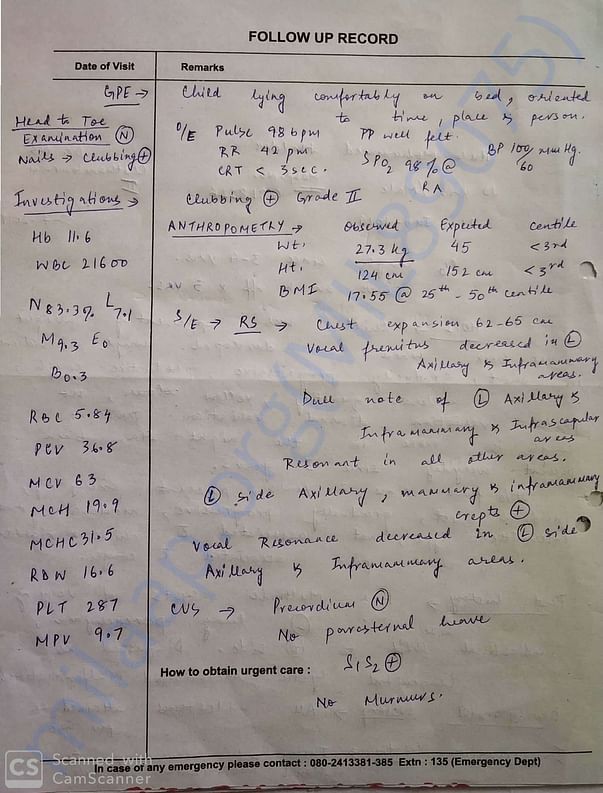 FOLLOW UP RECORD
Date of Visit
Remarks
GPE → Child lying comfortably on bed, oriented
to time, place & person.
Head to Toe
Examination Ⓝ
Nails → Clubbing ⊕
O/E Pulse 98 bpm PP well felt.
RR 42 pm SPO2 98% @ RA BP 100/60 mmHg.
CRT < 3 sec.
Clubbing ⊕ Grade II
Investigations →
Hb 11.6
WBC 21600
N 83.3% L 7.1
M 9.3 E 0
B 0.3
RBC 5.84
PCV 36.8
MCV 63
MCH 19.9
MCHC 31.5
RDW 16.6
PLT 287
MPV 9.7
ANTHROPOMETRY → Observed Expected centile
Wt. 27.3 kg 45 <3rd
Ht. 124 cm 152 cm <3rd
BMI 17.55 @ 25th - 50th centile
S/E → RS → Chest expansion 62-65 cm
Vocal fremitus decreased in Ⓛ
Axillary & Inframammary
areas.
Dull note of Ⓛ Axillary &
Inframammary & Infrascapular
areas
Resonant in all other areas.
Ⓛ side Axillary, mammary & inframammary
crepts ⊕
Vocal Resonance decreased in Ⓛ side
Axillary & Inframammary areas.
CVS → Precordium Ⓝ
No parasternal heave
S1S2 ⊕
No Murmurs.
How to obtain urgent care :
In case of any emergency please contact : 080-2413381-385 Extn : 135 (Emergency Dept)
CS Scanned with
CamScanner